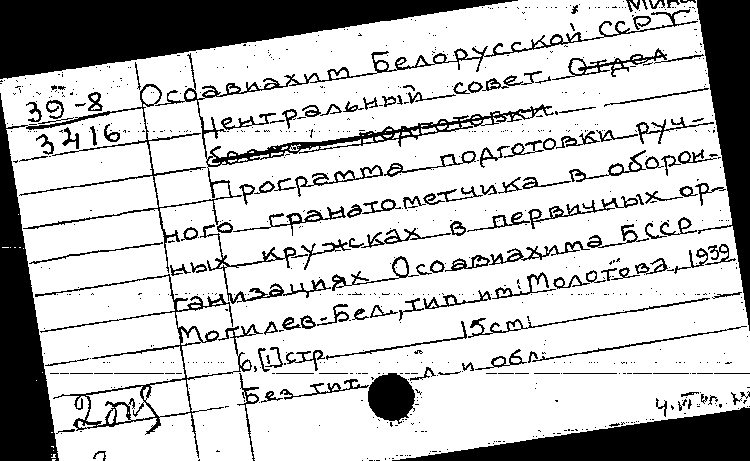 39-8
3416
Осоавиахим Белорусской ССР
Центральный совет. Отдел
боевой подготовки.
Программа подготовки руч-
ного гранатометчика в оборон-
ных кружсках в первичных ор-
ганизациях Осоавиахима БССР.
Могилев-Бел., тип. им. Молотова, 1939
6,[1] стр. 15 см.
Без тит. л. и обл.